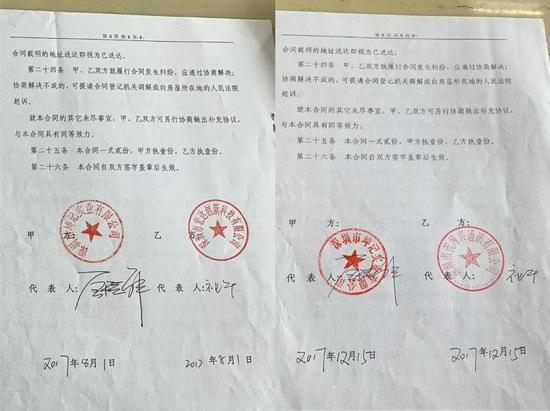 合同载明的地址送达即视为已送达。
第二十四条 甲、乙双方就履行合同发生纠纷,应通过协商解决;
协商解决不成的,可提请合同登记机关调解或向房屋所在地的人民法院
起诉。
就本合同的其它未尽事宜,甲、乙双方可另行协商做出补充协议,
与本合同具有同等效力。
第二十五条 本合同一式贰份,甲方执壹份,乙方执壹份。
第二十六条 本合同自双方签字盖章后生效。
甲 方: 乙 方:
代 表 人: 代 表 人:
2017年8月1日 2017年8月1日
合同载明的地址送达即视为已送达。
第二十四条 甲、乙双方就履行合同发生纠纷,应通过协商解决;
协商解决不成的,可提请合同登记机关调解或向房屋所在地的人民法院
起诉。
就本合同的其它未尽事宜,甲、乙双方可另行协商做出补充协议,
与本合同具有同等效力。
第二十五条 本合同一式贰份,甲方执壹份,乙方执壹份。
第二十六条 本合同自双方签字盖章后生效。
甲 方: 乙 方:
代 表 人: 代 表 人:
2017年12月15日 2017年12月15日